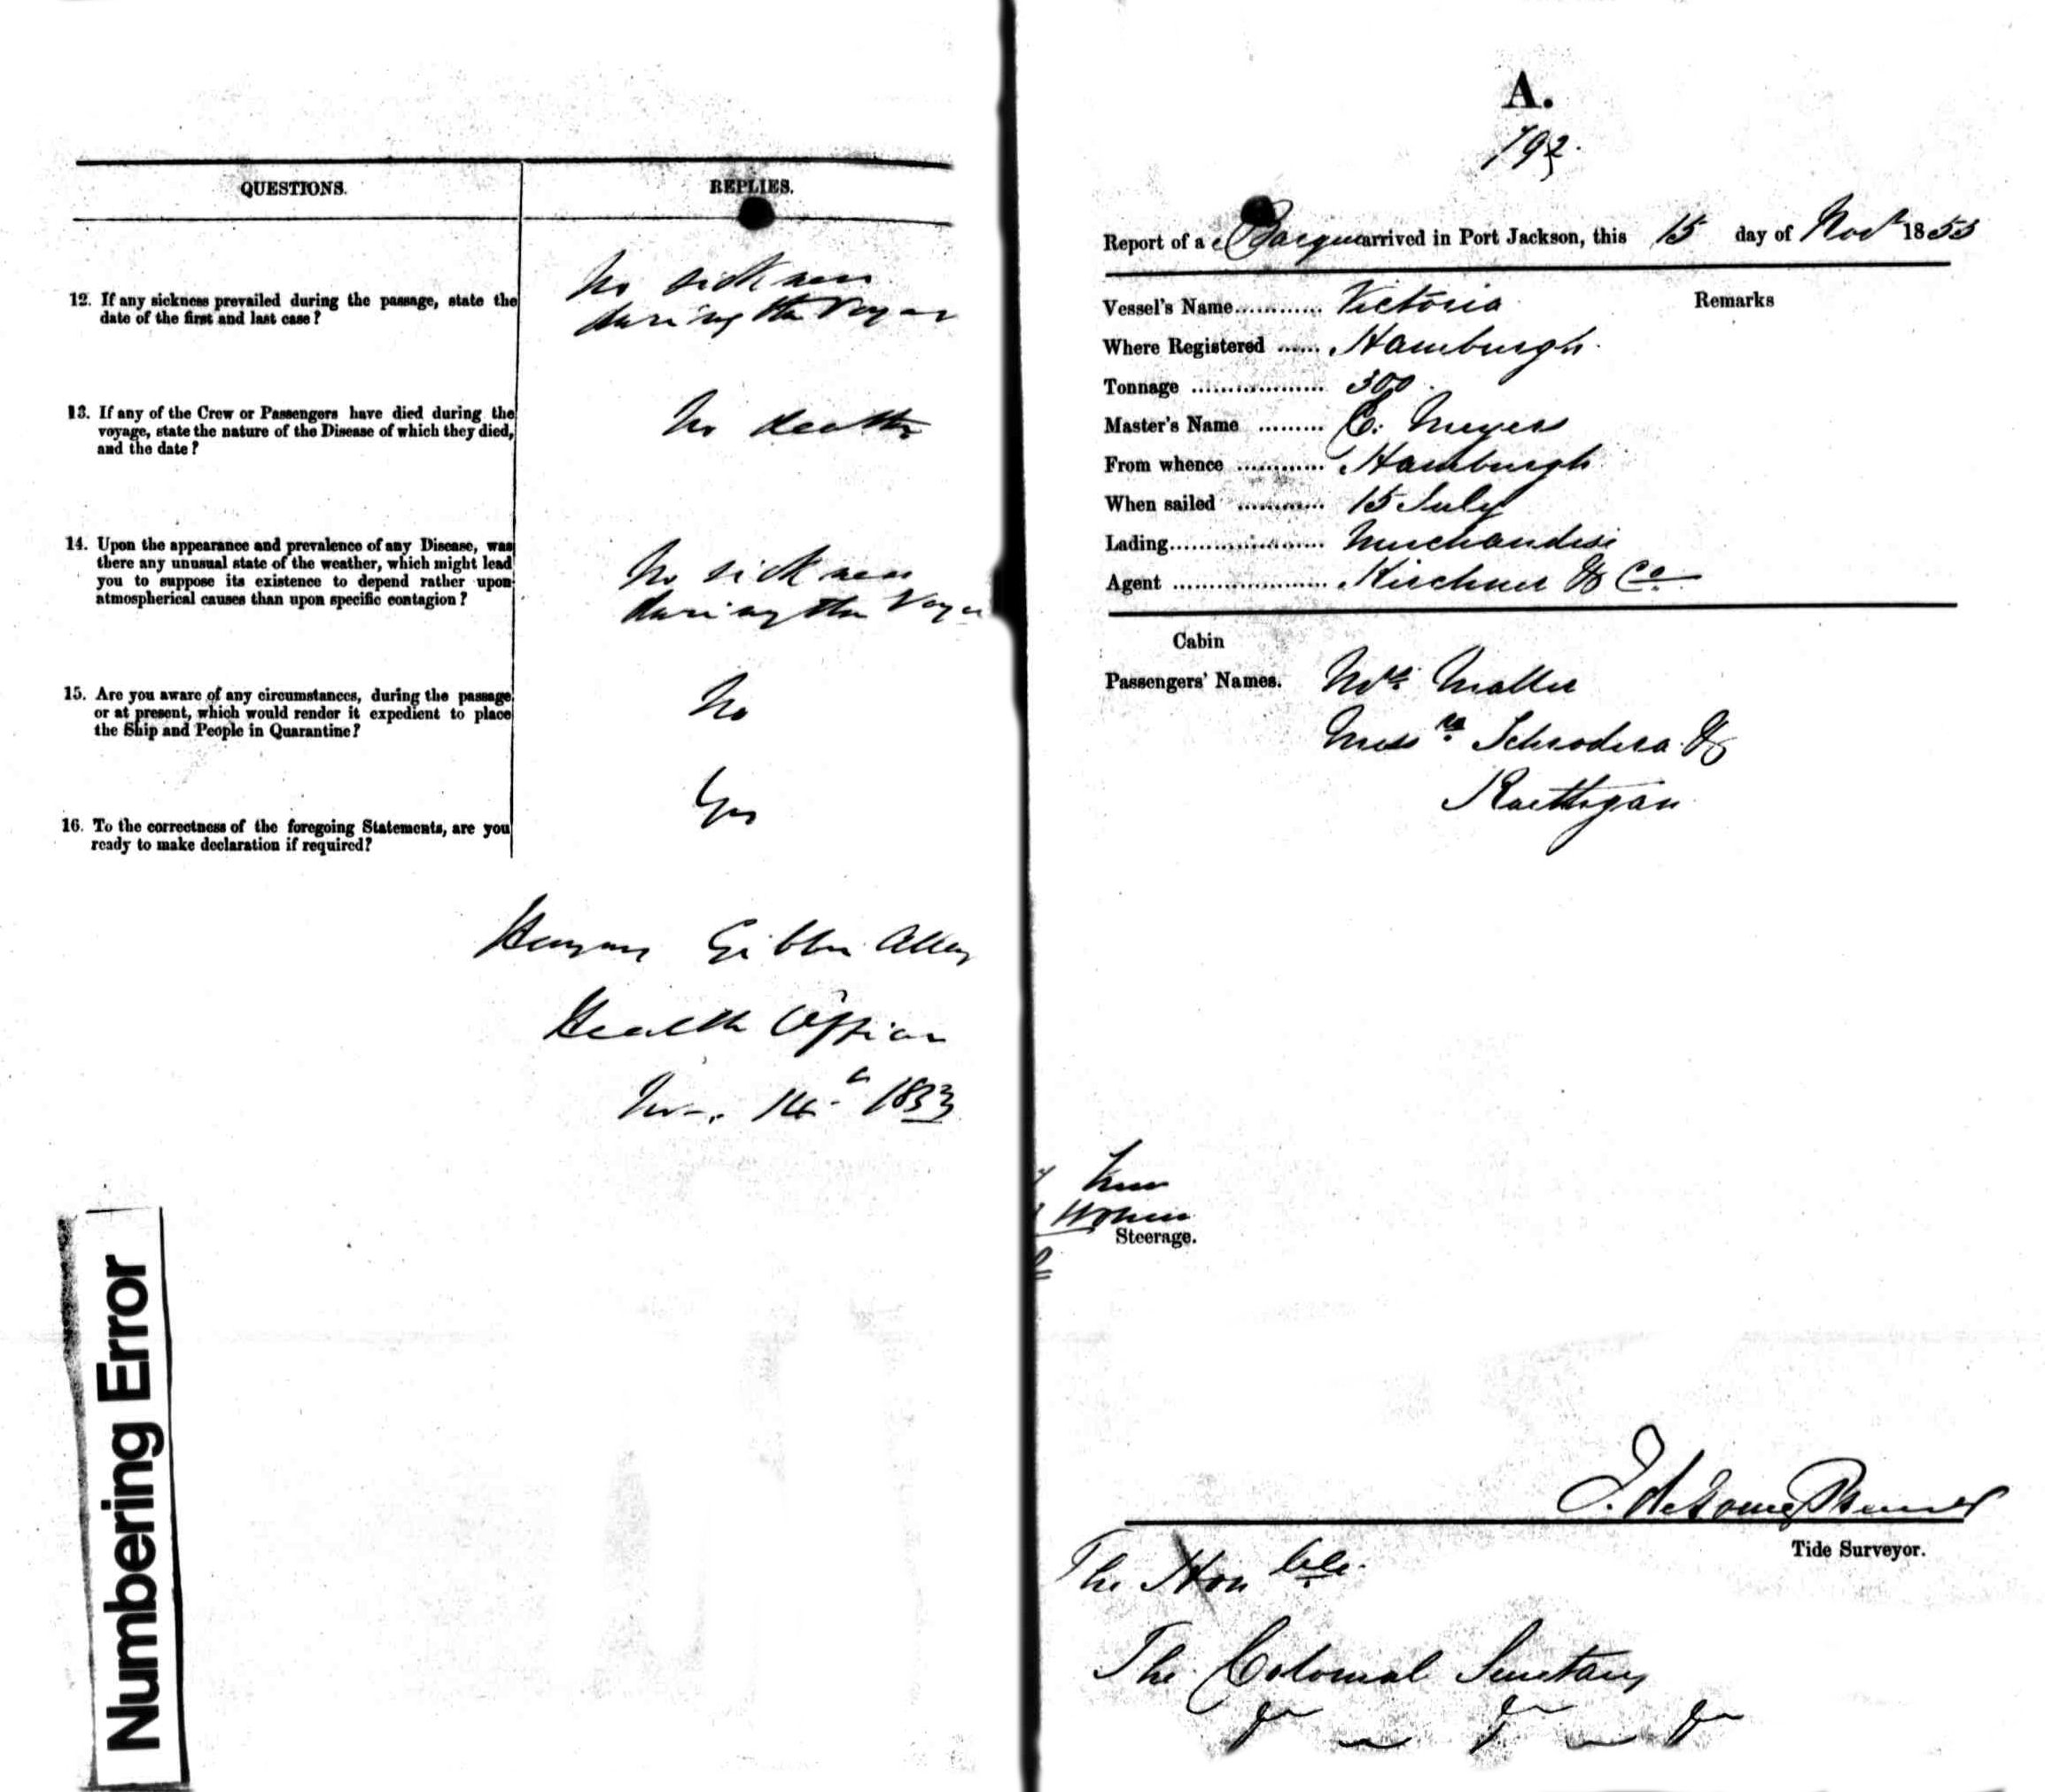 QUESTIONS.
REPLIES.
12. If any sickness prevailed during the passage, state the
date of the first and last case?
No sickness
during the Voyage
13. If any of the Crew or Passengers have died during the
voyage, state the nature of the Disease of which they died,
and the date?
No death
14. Upon the appearance and prevalence of any Disease, was
there any unusual state of the weather, which might lead
you to suppose its existence to depend rather upon
atmospherical causes than upon specific contagion?
No sickness
during the Voya
15. Are you aware of any circumstances, during the passage
or at present, which would render it expedient to place
the Ship and People in Quarantine?
No
16. To the correctness of the foregoing Statements, are you
ready to make declaration if required?
Yes
Gibbes Alley
Health Officer
14 1853
Numbering Error
A.
192.
Report of a Barque arrived in Port Jackson, this 15 day of Novr 1853
Vessel's Name............ Victoria
Remarks
Where Registered ...... Hamburgh.
Tonnage .................. 300.
Master's Name ......... C. Meyer
From whence ............ Hamburgh
When sailed ............ 15 July
Lading..................... Merchandise
Agent ..................... Kirchner & Co.
Cabin
Passengers' Names. Mrs. Maller
Messrs. Schrodera &
Raettigan
Men
Women
Steerage.
Tide Surveyor.
The Honble.
The Colonial Secretary